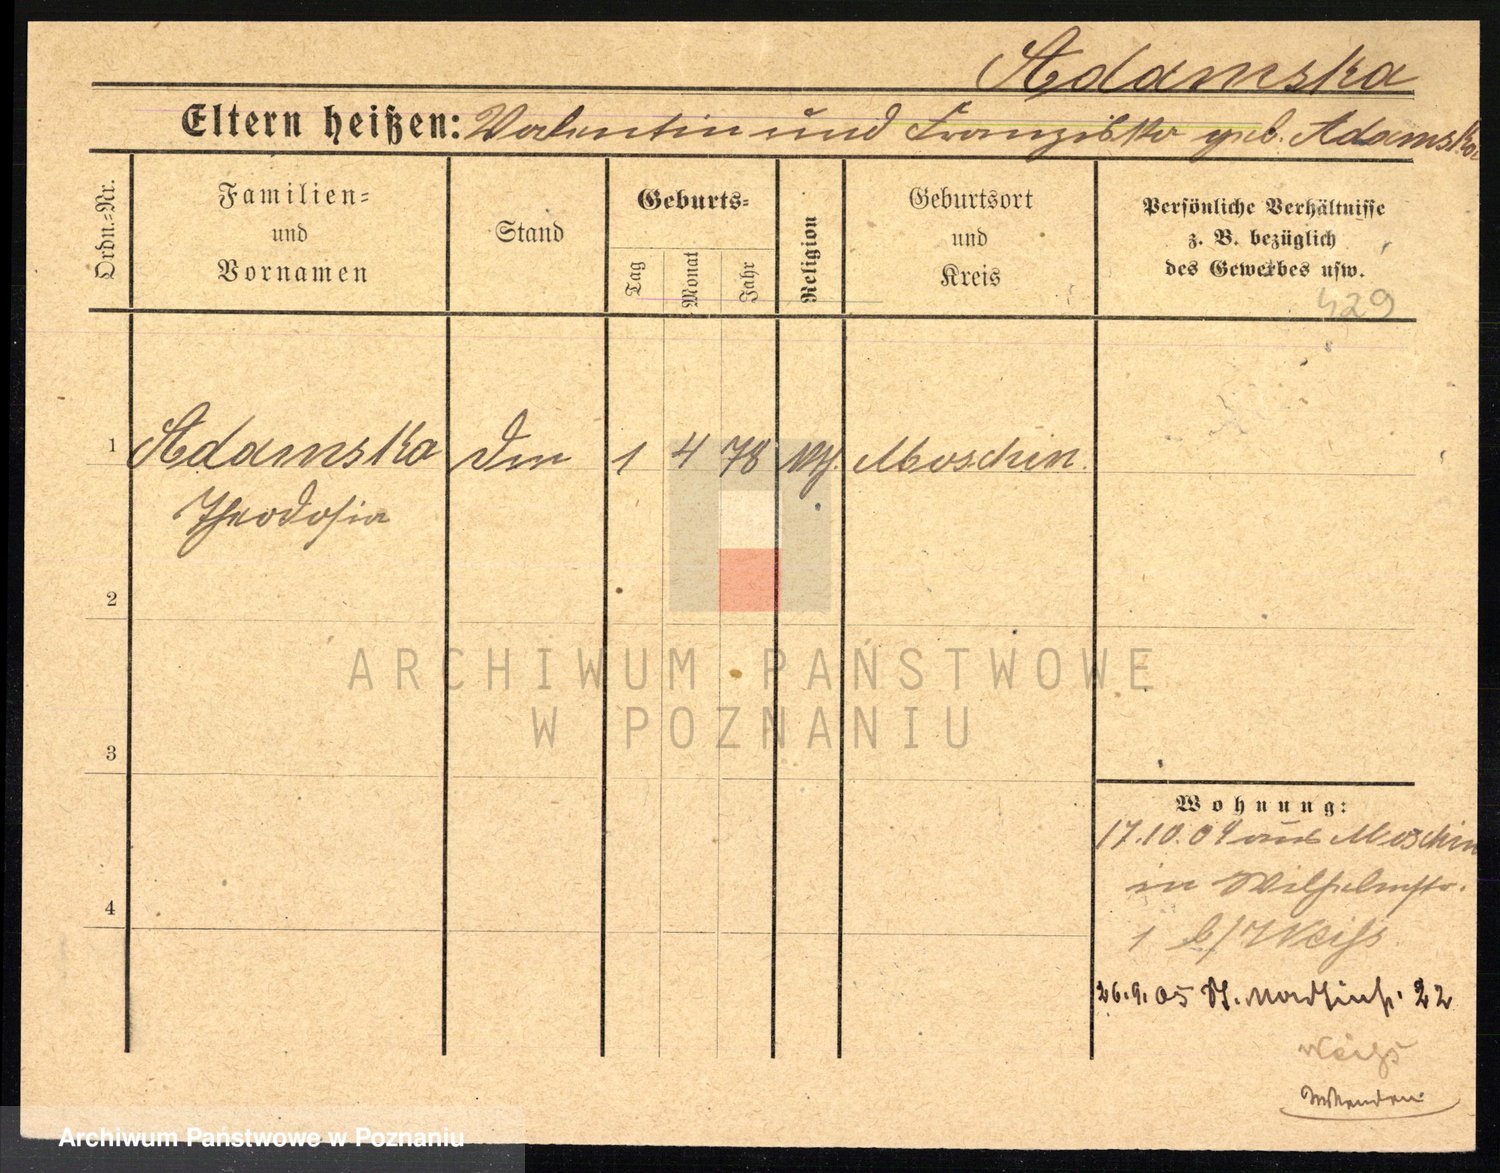 Adamska
Eltern heißen: Valentin und Franziska geb. Adamska
Ordn.=Nr.
Familien=
und
Vornamen
Stand
Geburts=
Tag
Monat
Jahr
Religion
Geburtsort
und
Kreis
Persönliche Verhältnisse
z. B. bezüglich
des Gewerbes usw.
429
1 Adamska 1 4 78 Moschin
Theodosia
2
3
4
Wohnung:
17.10.04 aus Moschin
in Wilhelmstr.
1 b/ Weiss
26.9.05 St. Martinstr. 22
Weiss
ARCHIWUM PAŃSTWOWE
W POZNANIU
Archiwum Państwowe w Poznaniu